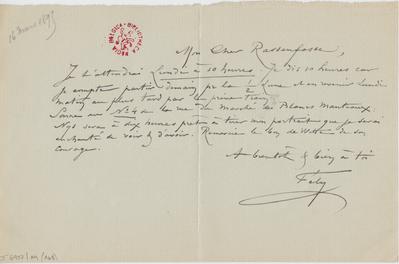 16 mars 189
Mon Cher Rassenfosse,
Je t'attendrai Lundi à 10 heures. Je dis 10 heures car
je compte partir demain pr la 1/2 Lune et en revenir Lundi
matin au plus tard par le premier train.
Sonne au No 4 de la rue du Marché des Blancs Manteaux.
Nys sera à dix heures prêt à tirer mon portrait que je serai
enchanté de voir & d'avoir. Remercie le Cog de Witte de son
courage.
A bientôt & bien à toi
Fély